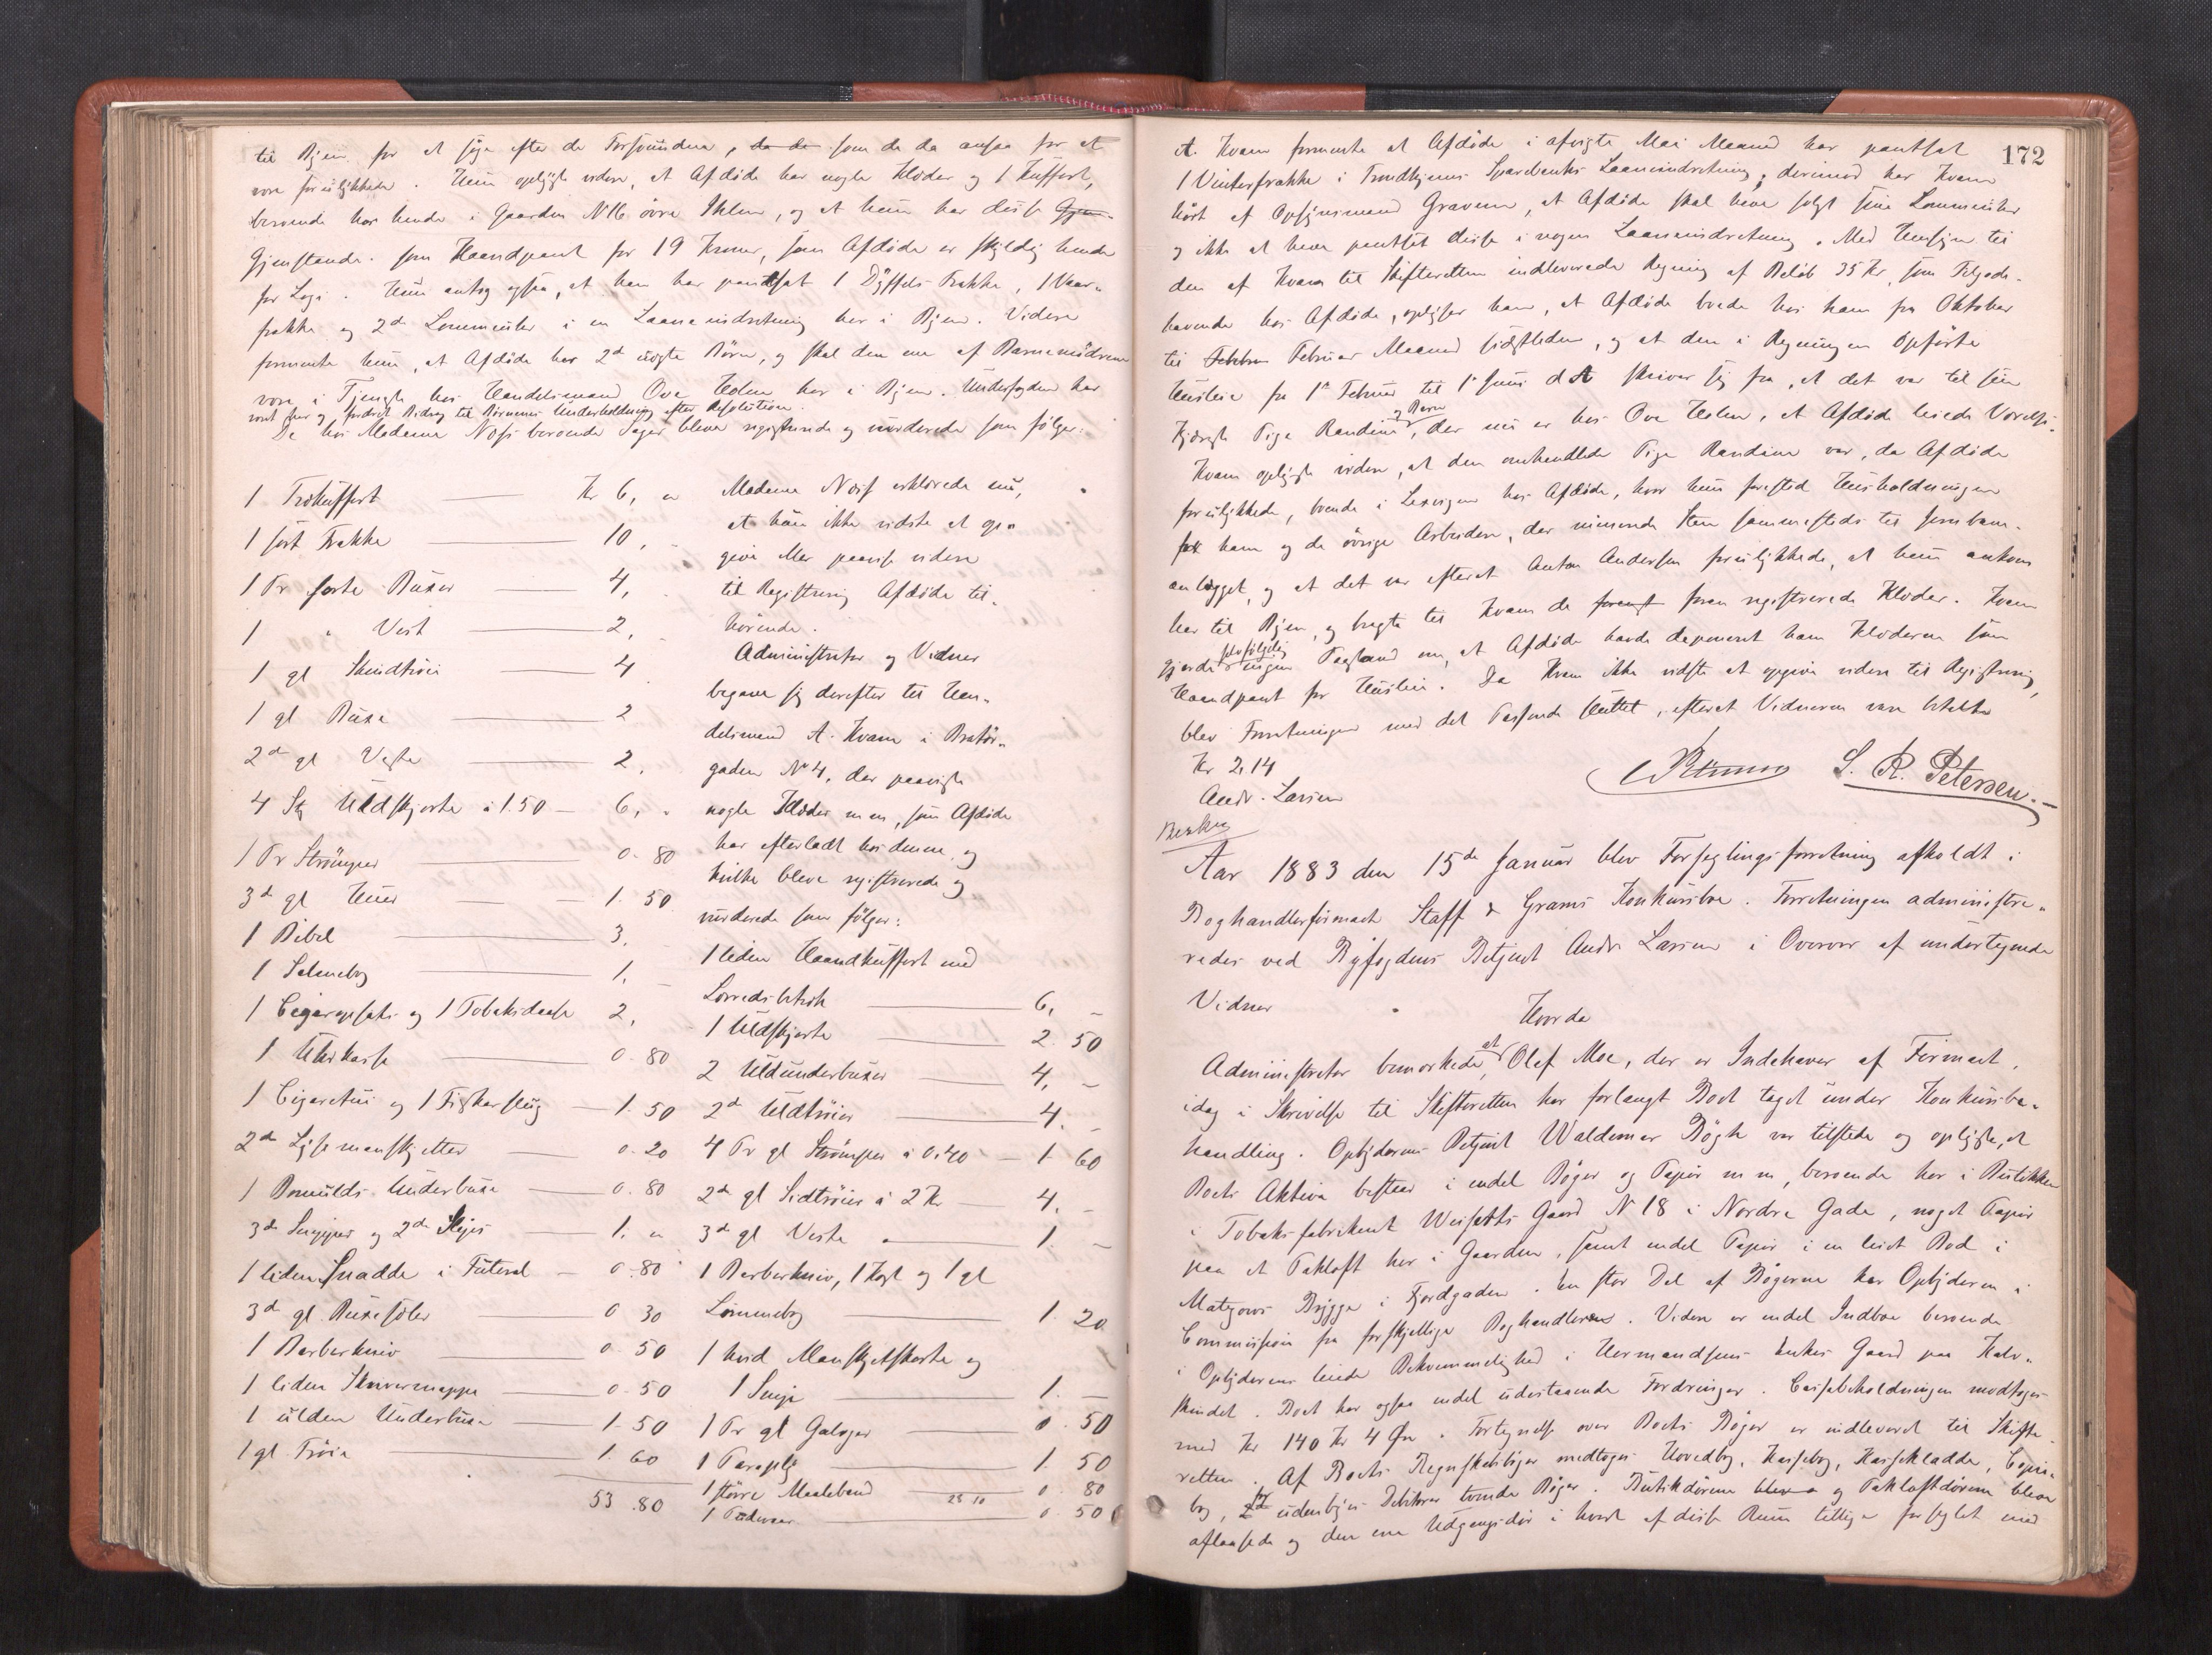 til Byen for at søge efter de Forsvundne, da de som de da ansaa for at
være forulykkede. Hun oplyste videre, at Afdøde har nogle Klæder og 1 Kuffert,
beroende hos hende i Gaarden N 16 øvre Ihlen, og at hun har disse Gjen-
Gjenstande som Haandpant for 19 Kroner, som Afdøde er skyldig hende
for Logi. Hun antog ogsaa, at han har pantsat 1 Dyffels Frakke, 1 Vaar-
frakke og 2de Lommeuhr i en Laaneindretning her i Byen. Videre
formente hun, at Afdøde har 2de uægte Børn, og skal den ene af Barnemødrene
være i Tjeneste hos Handelsmand Ove Holm her i Byen.
vært her og fordret Bidrag til Børnenes Underholdning efter Resolution.
De hos Madame Næss beroende Sager bleve registrerede og vurderede som følger:
1 Trækuffert Kr 6, "
1 sort Frakke 10, -
1 Pr sorte Buxer 4, -
1 " Vest 2, -
1 gl Skindtrøie 4
1 gl Buxe 2
2de gl Veste 2,
4 Stk Uldskjorte à 1.50 — 6, "
1 Pr Strømper 0.80
3de gl Huer 1.50
1 Bibel 3,
1 Salmebog 1, -
1 Cigaropsats og 1 Tobaksdaase 2,
1 Uhrkasse 0.80
1 Cigaretui og 1 1.50
2de Lysemanskjetter 0.20
1 Bomulds Underbuxe 0.80
3de og 2de Slips 1. "
1 liden Snadde i Futeral 0.80
3de gl Buxeseler 0 30
1 Barberkniv 0.50
1 liden Skrivermappe 0.50
1 ulden Underbuxe 1.50
1 gl Trøie 1.60
53.80
Madame Næss erklærede nu,
at hun ikke vidste at op-
give eller paavise videre
til Registrering Afdøde til-
hørende.
Administrator og Vidner
begave sig derefter til Han-
delsmand A. Kvam i Bratør-
gaden No 4, der paaviste
nogle Klæder m m, som Afdøde
har efterladt hos denne, og
hvilke bleve registrerede og
vurderede som følger:
1 liden Haandkuffert med
Lærredsbetræk 6, -
1 Uldskjorte 2.50
2 Uldunderbuxer 4, -
2de Uldtrøier 4. -
4 Pr gl Strømper à 0.40 — 1.60
2de gl Sidtrøier à 2 Kr — 4. -
3de gl Veste 1. -
1 Barberkniv, 1 og 1 gl
Lommebog 1.20
1 hvid Manskjetskorte og
1 1. -
1 Pr gl Galoger 0.50
1 Paraply 1.50
1 større Maalebaand 28 10 0.80
1 0.50
172
A. Kvam formente at Afdøde i afvigte Mai Maaned har pantsat
1 Vinterfrakke i Trondhjems Sparebanks Laaneindretning, derimod har Kvam
hørt af Opsynsmand Graven, at Afdøde skal have solgt sine Lommeuhr
og ikke at have pantsat disse i nogen Laaneindretning. Med Hensyn til
den af Kvam til Skifteretten indleverede Regning af Beløb 35 Kr, som Tilgode-
havende hos Afdøde, oplyser han, at Afdøde boede hos ham fra Oktober
til Februar Maaned sidstleden, og at den i Regningen opførte
Husleie fra 1ste Februar til 1ste Juni d A skriver sig fra, at det var til sin
Kjæreste Pige Randine og Barn, der nu er hos Ove Holm, at Afdøde leiede Værelse.
Kvam oplyste videre, at den omhandlede Pige Randine var, da Afdøde
forulykkede, boende i Lexvigen hos Afdøde, hvor hun forestod Husholdningen
for ham og de øvrige Arbeidere, der minerede Sten sammesteds til Jernbane-
anlægget, og at det var efterat Anton Andersen forulykkede, at hun ankom
her til Byen, og bragte til Kvam de foran registrerede Klæder. Kvam
gjorde selvfølgelig ingen Paastand om, at Afdøde havde deponeret ham Klæderne som
Haandpant for Husleie. Da Kvam ikke vidste at opgive videre til Registrering,
blev Forretningen med det Passerede sluttet, efterat Vidnerne vare betalte
Kr 2,14
Andr. Larsen
S. R. Petersen.
Aar 1883 den 15de Januar blev Forseglingsforretning afholdt i
Boghandlerfirmaet Staff & Grams Konkursbo. Forretningen administre-
redes ved Byfogdens Betjent Andr Larsen i Overvær af undertegnede
Vidner
Hvorda
Administrator bemærkede, at Olaf Moe, der er Indehaver af Firmaet,
idag i Skrivelse til Skifteretten har forlangt Boet taget under Konkursbe-
handling. Opbyderens Betjent Waldemar Bøgh var tilstede og oplyste, at
Boets Aktiva bestaar i endel Bøger og Papir m m, beroende her i Butikken
i Tobaksfabrikant Gaard N 18 i Nordre Gade, noget Papir
paa et Pakloft her i Gaarden, samt endel Papir i en leiet Bod i
Matzows Brygge i Fjordgaden. En stor Del af Bøgerne har Opbyderen i
Commission fra forskjellige Boghandlere. Videre er endel Indbo beroende
i Opbyderens leiede Bekvemmelighed i Hermandsens Enkes Gaard paa Kalv-
skindet. Boet har ogsaa endel udestaaende Fordringer. Cassebeholdningen modtoges
med Kr 140 Kr 4 Øre. Fortegnelse over Boets Bøger er indleveret til Skifte-
retten. Af Boets Regnskabsbøger medtoges Hovedbog, Kassebog, Kassekladde, Copie-
bog, udenbyes Debitorer Bøger. Butikdørene og Pakloftdørene bleve
aflaasede og den ene Udgangsdør i hvert af disse Rum tillige forseglet med